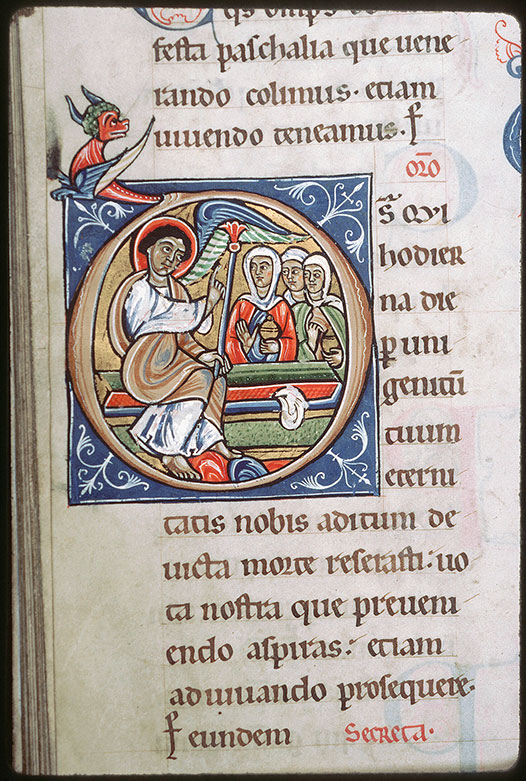 festa paschalia que uene
rando colimus. etiam
uiuendo teneamus. ꝑ
oro
DS Qui
hodier
na die
ꝑ uni
genitū
tuum
eterni
tatis nobis aditum de
uicta morte reserasti: uo
ta nostra que preueni
endo aspiras: etiam
adiuuando prosequere.
ꝑ eundem Secreta.